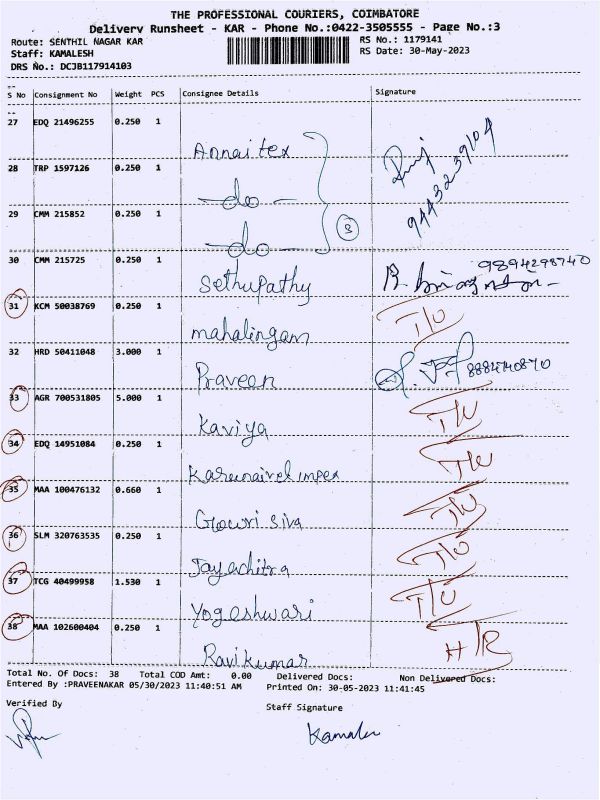 THE PROFESSIONAL COURIERS, COIMBATORE
Delivery Runsheet - KAR - Phone No.:0422-3505555 - Page No.:3
Route: SENTHIL NAGAR KAR RS No.: 1179141
Staff: KAMALESH RS Date: 30-May-2023
DRS No.: DCJB117914103
S No Consignment No Weight PCS Consignee Details Signature
27 EDQ 21496255 0.250 1
Annai tex
9443239104
28 TRP 1597126 0.250 1
-do-
29 CMM 215852 0.250 1
-do- 3
30 CMM 215725 0.250 1
Sethupathy 9894298740
31 KCM 50038769 0.250 1
mahalingam T/U
32 HRD 50411048 3.000 1
Praveen
33 AGR 700531805 5.000 1
Kaviya T/U
34 EDQ 14951084 0.250 1
Karunaivel impex T/U
35 MAA 100476132 0.660 1
Gowri siva T/U
36 SLM 320763535 0.250 1
Jayachitra T/U
37 TCG 40499958 1.530 1
Yogeshwari T/U
38 MAA 102600404 0.250 1
Ravikumar H/R
Total No. Of Docs: 38 Total COD Amt: 0.00 Delivered Docs: Non Delivered Docs:
Entered By :PRAVEENAKAR 05/30/2023 11:40:51 AM Printed On: 30-05-2023 11:41:45
Verified By Staff Signature
Kamalesh